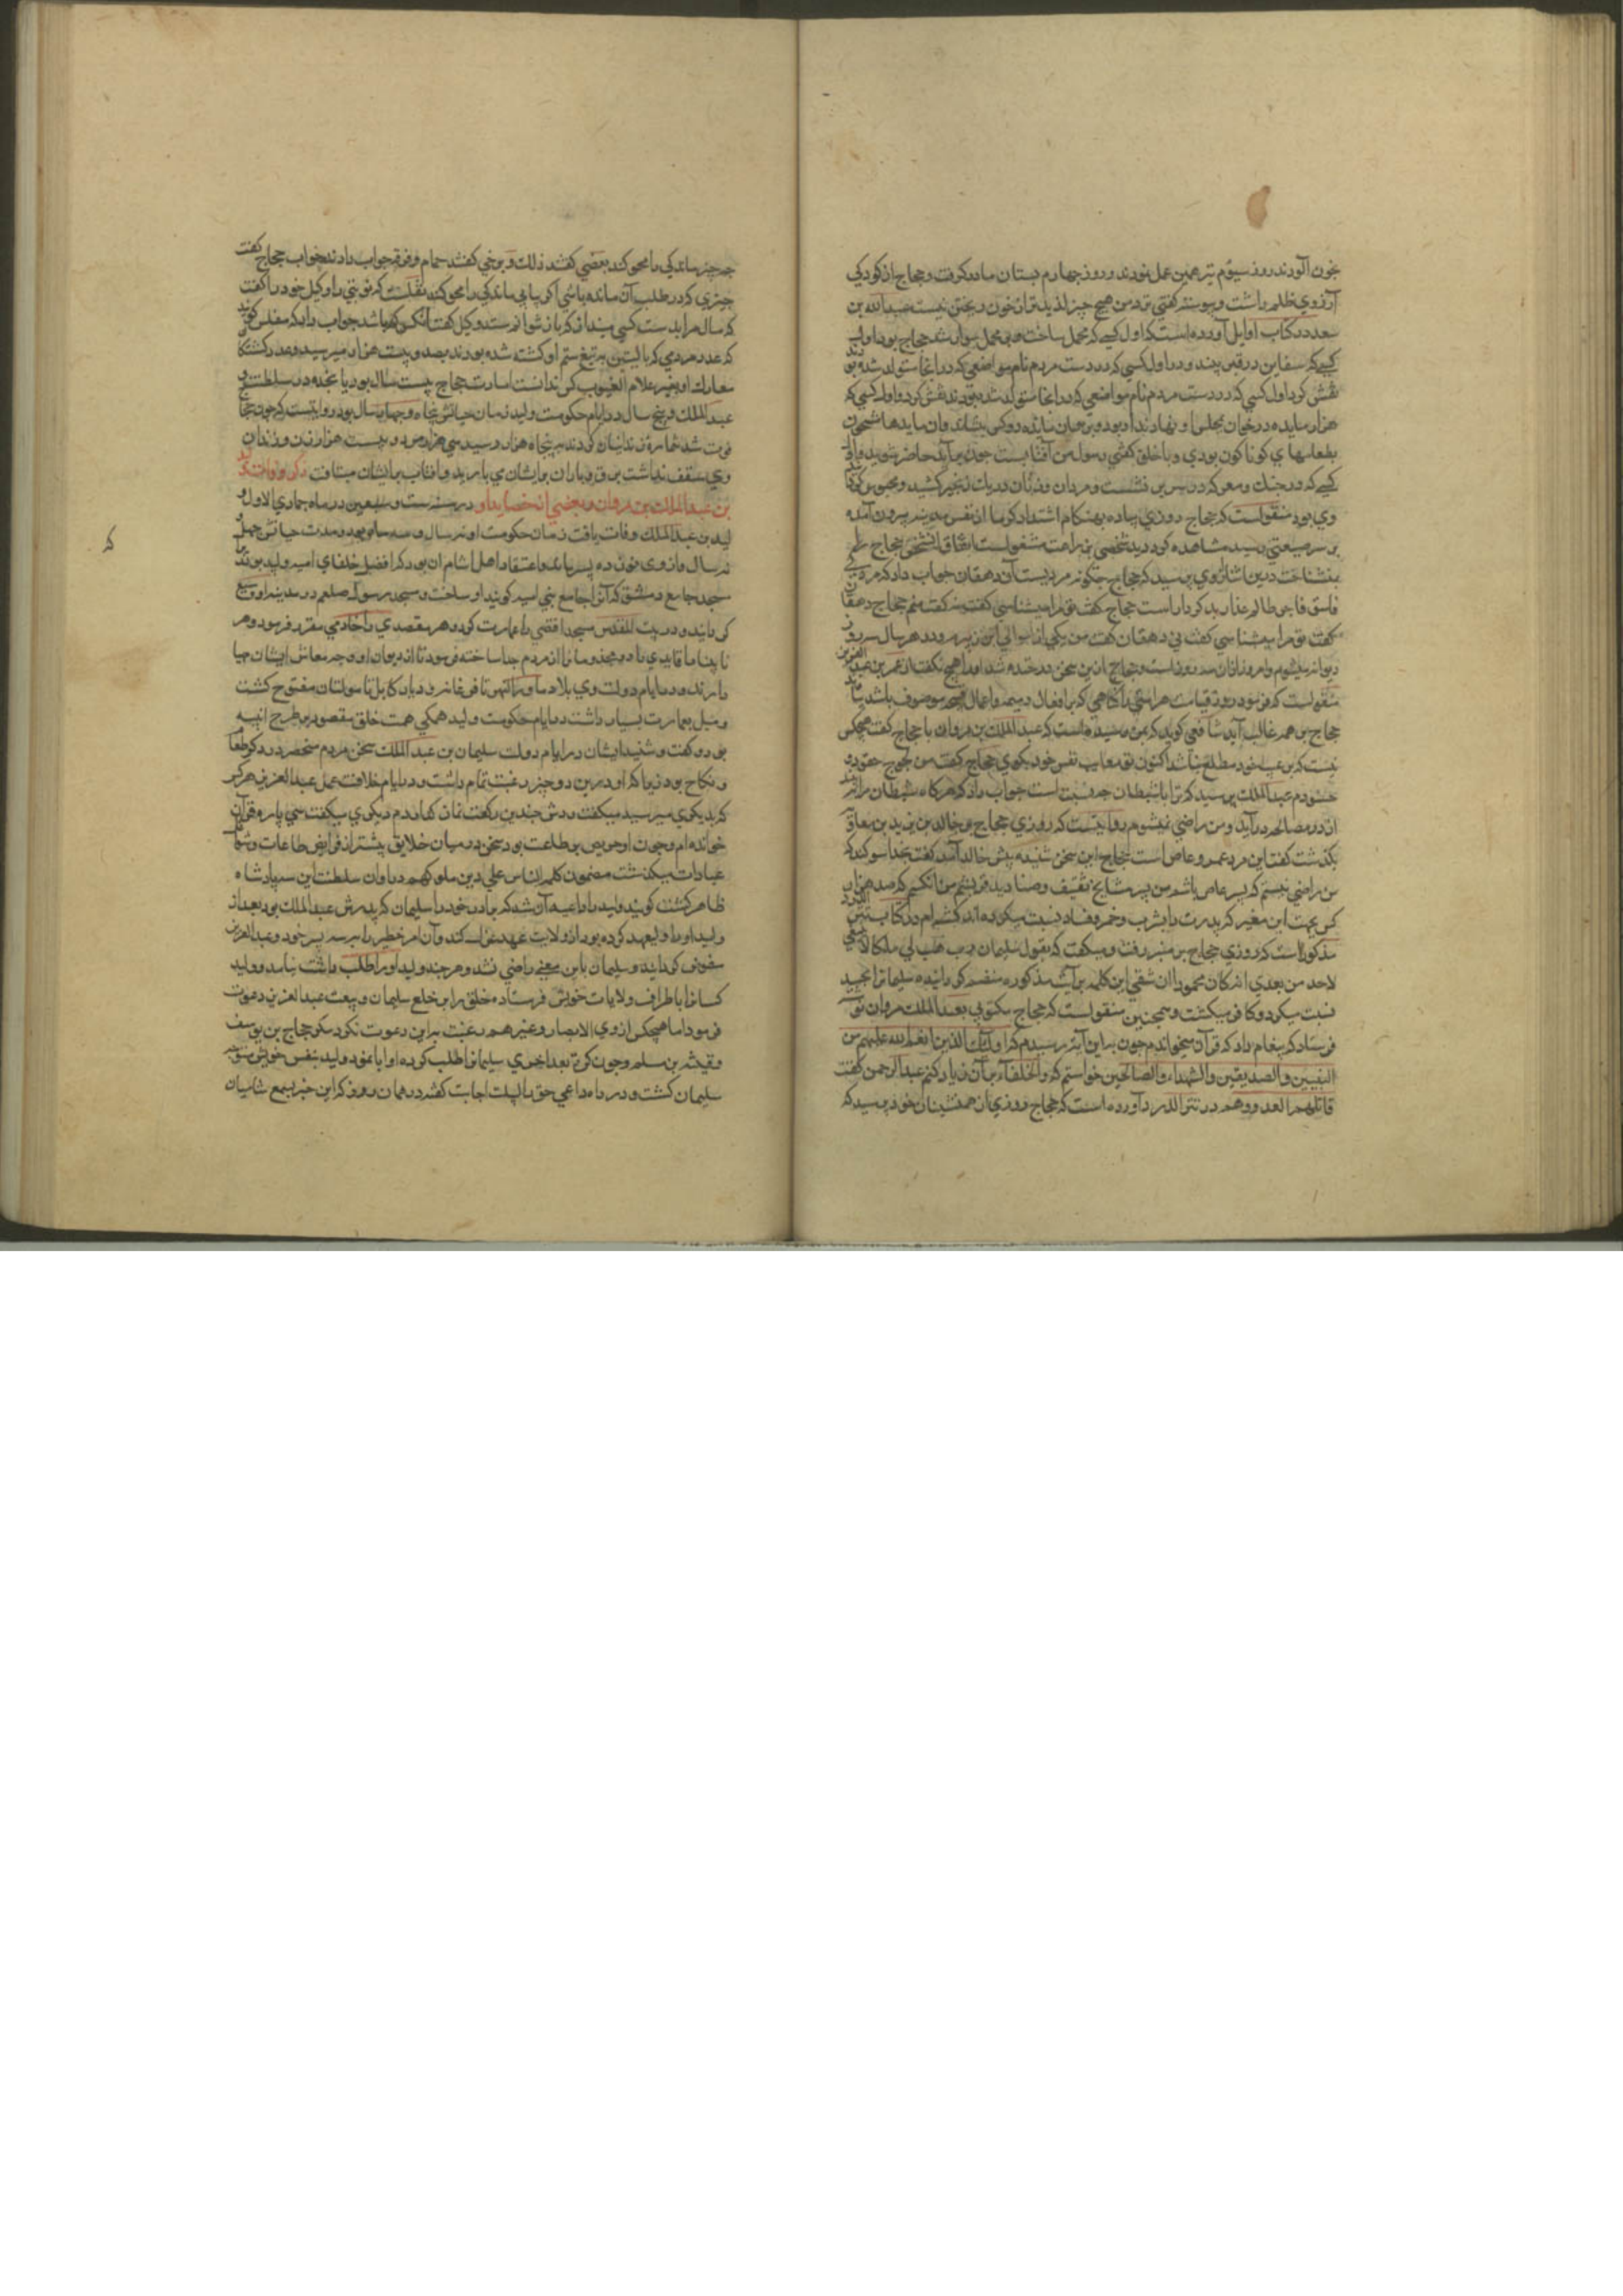 بخون آلودند روز سیوم نیز همین عمل نمودند و روز چهارم پستان مادر گرفت و حجاج از کودکی
آرزوی ظلم داشت و پیوسته گفتی نزد من هیچ چیز لذیذتر از خون ریختن نیست عبدالله بن
سعد در کتاب اوایل آورده است که اول کسی که محمل ساخت و بر محمل سوار شد حجاج بود و اول
کسی که سفاین در قیر و اول کسی که در دست مردم نام مواضعی که در انجا متولد شده بودند
نقش کرد اول کسی که در دست مردم نام مواضعی که در انجا متولد شده بودند نقش کرد و اول کسی که
هزار مایده در خوان مجلس او نهادند او بود و بر هر مائده ده کس بنشاند و آن مایدها مشحون
بطعامهای کوناکون بودی و با خلق گفتی رسول من آفتابست چون برآید حاضر شوید و اول
کسی که در جنک و معرکه بر سریر نشست و مردان و زنان در یک زنجیر کشید و محبوس کرد
وی بود منقولست که حجاج روزی پیاده بهنکام اشتداد کرما از نفس مدینه بیرون آمده
بر سر صیعتی رسید مشاهده کرد دید شخصی بزراعت مشغولست اتفاقا آن شخص حجاج را
نمیشناخت در این اثنا از وی پرسید که حجاج چکونه مردیست آن دهقان جواب داد که مردی
فاسق فاجر ظالم غدار بدکردار است حجاج گفت تو مرا میشناسی گفت نه گفت منم حجاج دهقان
گفت تو مرا میشناسی گفت نی دهقان گفت من یکی از موالی ابن زبیرم و در هر سال سه روز
دیوانه میشوم و امروز از آن سه روز است و حجاج از این سخن در خنده شد او را هیچ نگفت از عمر بن عبد العزیز
منقولست که فرمود روز قیامت هر امتی را گناهی که بر افعال ذمیمه و اعمال قبیحه موصوف باشد بیارند
حجاج بر همه غالب آید شافعی گوید که بمن رسیده است که عبدالملک بن مروان با حجاج گفت هیچکس
نیست که بر عیب خود مطلع نباشد اکنون تو معایب نفس خود بگوی حجاج گفت من لجوج حقود و
حسودم عبدالملک پرسید که ترا با شیطان چه نسبت است جواب داد که هرگاه شیطان مرا بیند
از در مصالحه در آید و من راضی نیشوم روایتست که روزی حجاج بر خالد بن یزید بن معاویه
بگذشت گفت این مرد عمرو عاص است حجاج این سخن شنیده پیش خالد آمد گفت بخدا سوگند که
من راضی نیستم که پسر عاص باشم من پسر مشایخ ثقیف و صنادید قریشم من آنکسم که صد هزار
کس بجهت این معنی که پدرت را بشرب و خمر و فساد نسبت میکرده اند کشته ام در کتاب
مذکور است که روزی حجاج بر منبر رفت و میگفت که بقول سلیمان رب هب لی ملکا لا ینبغی
لاحد من بعدی انه کان محمودا ان شقی این کلمه بر آیت مذکوره منضم گردانیده سلیمانرا بحسد
نسبت میکرد و کافر میگشت و همچنین منقولست که حجاج مکتوبی بعبدالملک مروان نوشته
فرستاد که پیغام داد که قرآن میخواندم چون براین آیه رسیدم که اولئک الذین انعم الله علیهم من
النبیین والصدیقین والشهداء والصالحین خواستم که والخلفاء برآن زیاد کنم عبدالرحمن گفت
قاتلهم العدو و هم در نثر الدرر آورده است که حجاج روزی از همنشینان خود پرسید که
چه چیز ماندگی را محو کند بعضی گفتند ذلک و برخی گفتند حمام و فرقه جواب دادند خواب حجاج گفت
چیزی که در طلب آن مانده باشی اگر یابی ماندگی را محو کند نقلست که نوبتی با وکیل خود را گفت
که مال مرا بدست کسی مینداز که باز نتوان ستد وکیل گفت آنکس که باشد جواب داد که مفلس گویند
که عدد مردمی که بالیقین به تیغ ستم او کشته شده بودند بصد و بیست هزار میرسید و عدد کشتگان
معارک او بغیر علام الغیوب کس ندانست امارت حجاج بیست سال بود پانجده در سلطنت
عبدالملک و پنج سال در ایام حکومت ولید زمان حیاتش پنجاه و چهار سال بود روایتست که چون حجاج
فوت شد شماره زندانیان کردند به پنجاه هزار رسید سی هزار مرد و بیست هزار زن و زندان
وی سقف نداشت برف و باران بر ایشان می بارید و آفتاب بر ایشان میتافت ذکر وفات ولید
بن عبدالملک بن مروان و بعضی از خصایص او در سنه ست و تسعین در ماه جمادی الاول و
لید بن عبدالملک وفات یافت زمان حکومت او نه سال و سه ماه بود و مدت حیاتش چهل
نه سال و از وی نوزده پسر ماند و اعتقاد اهل شام آن بود که افضل خلفای امیه ولید بود و
مسجد جامع دمشق که آنرا جامع بنی امیه گویند او ساخت و مسجد رسول صلعم در مدینه او وسیع
گردانید و در بیت المقدس مسجد اقصی را عمارت کرد و هر مقعدی را خادمی مقرر فرمود و هر
نابینا را قایدی داد و مجذومانرا از مردم جدا ساخته فرمود تا از دیوان او وجه معاش ایشان مهیا
دارند و در ایام دولت وی بلاد ماوراءالنهر تا فرغانه و دیار کابل تا مولتان مفتوح گشت
و میل بعمارت بسیار داشت در ایام حکومت ولید همگی همت خلق مقصود بر طرح ابنیه
بود و گفت و شنید ایشان در ایام دولت سلیمان بن عبدالملک سخن مردم منحصر در ذکر طعام
و نکاح بود زیرا که او در این دو چیز رغبت تمام داشت و در ایام خلافت عمر عبدالعزیز هر که
که بدیگری میرسید میگفت دوش چندین رکعت نماز گذاردم دیگری میگفت سی پاره قرآن
خوانده ام و چون او حریص بر طاعت بود سخن در میان خلایق بیشتر از فرایض طاعات و
عبادات میگذشت مضمون کلمه الناس علی دین ملوکهم در اوان سلطنت این سه پادشاه
ظاهر گشت گویند ولید را داعیه آن شد که برادر خود را سلیمان که پدرش عبدالملک بود بعد از
ولید او را ولیعهد کرده بود از ولایت عهد عزل کند و آن امر خطیر را به پسر خود و عبدالعزیز
مفوض گرداند و سلیمان باین معنی راضی نشد و هر چند ولید او را طلب داشت نیامد و ولید
کسانرا باطراف ولایات خویش فرستاده خلق را بر خلع سلیمان و بیعت عبدالعزیز دعوت
فرمود اما هیچکس از ذوی الابصار و غیرهم رغبت براین دعوت نکرد مگر حجاج بن یوسف
و قتیبه بن مسلم و چون کرت بعد اخری سلیمانرا طلب کرده او ابا نمود ولید بنفس خویش متوجه
سلیمان گشت و در راه داعی حق را لبیک اجابت گفته در همان روز که این خبر بسمع شامیان
که